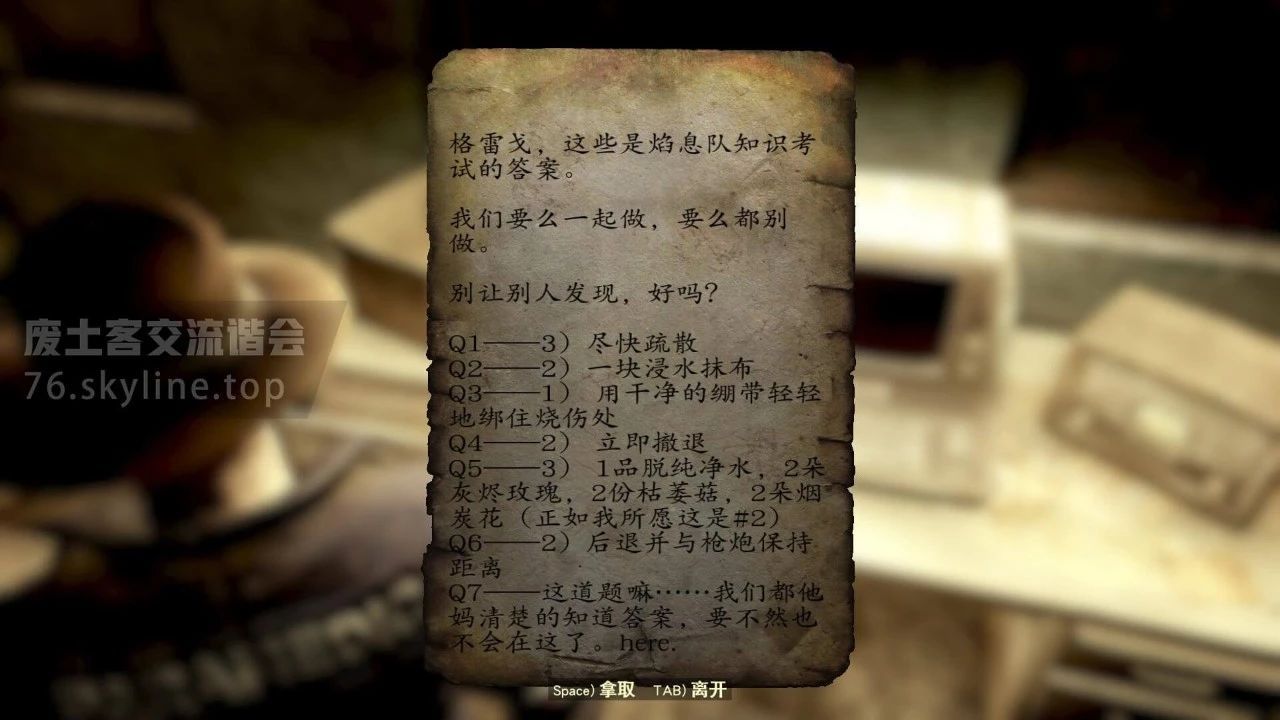 格雷戈，这些是焰息队知识考
试的答案。
我们要么一起做，要么都别
做。
别让别人发现，好吗？
Q1——3）尽快疏散
Q2——2）一块浸水抹布
Q3——1） 用干净的绷带轻轻
地绑住烧伤处
Q4——2） 立即撤退
Q5——3） 1品脱纯净水，2朵
灰烬玫瑰，2份枯萎菇，2朵烟
炭花（正如我所愿这是#2）
Q6——2）后退并与枪炮保持
距离
Q7——这道题嘛……我们都他
妈清楚的知道答案，要不然也
不会在这了。here.
废土客交流谐会
76.skyline.top
Space) 拿取 TAB) 离开